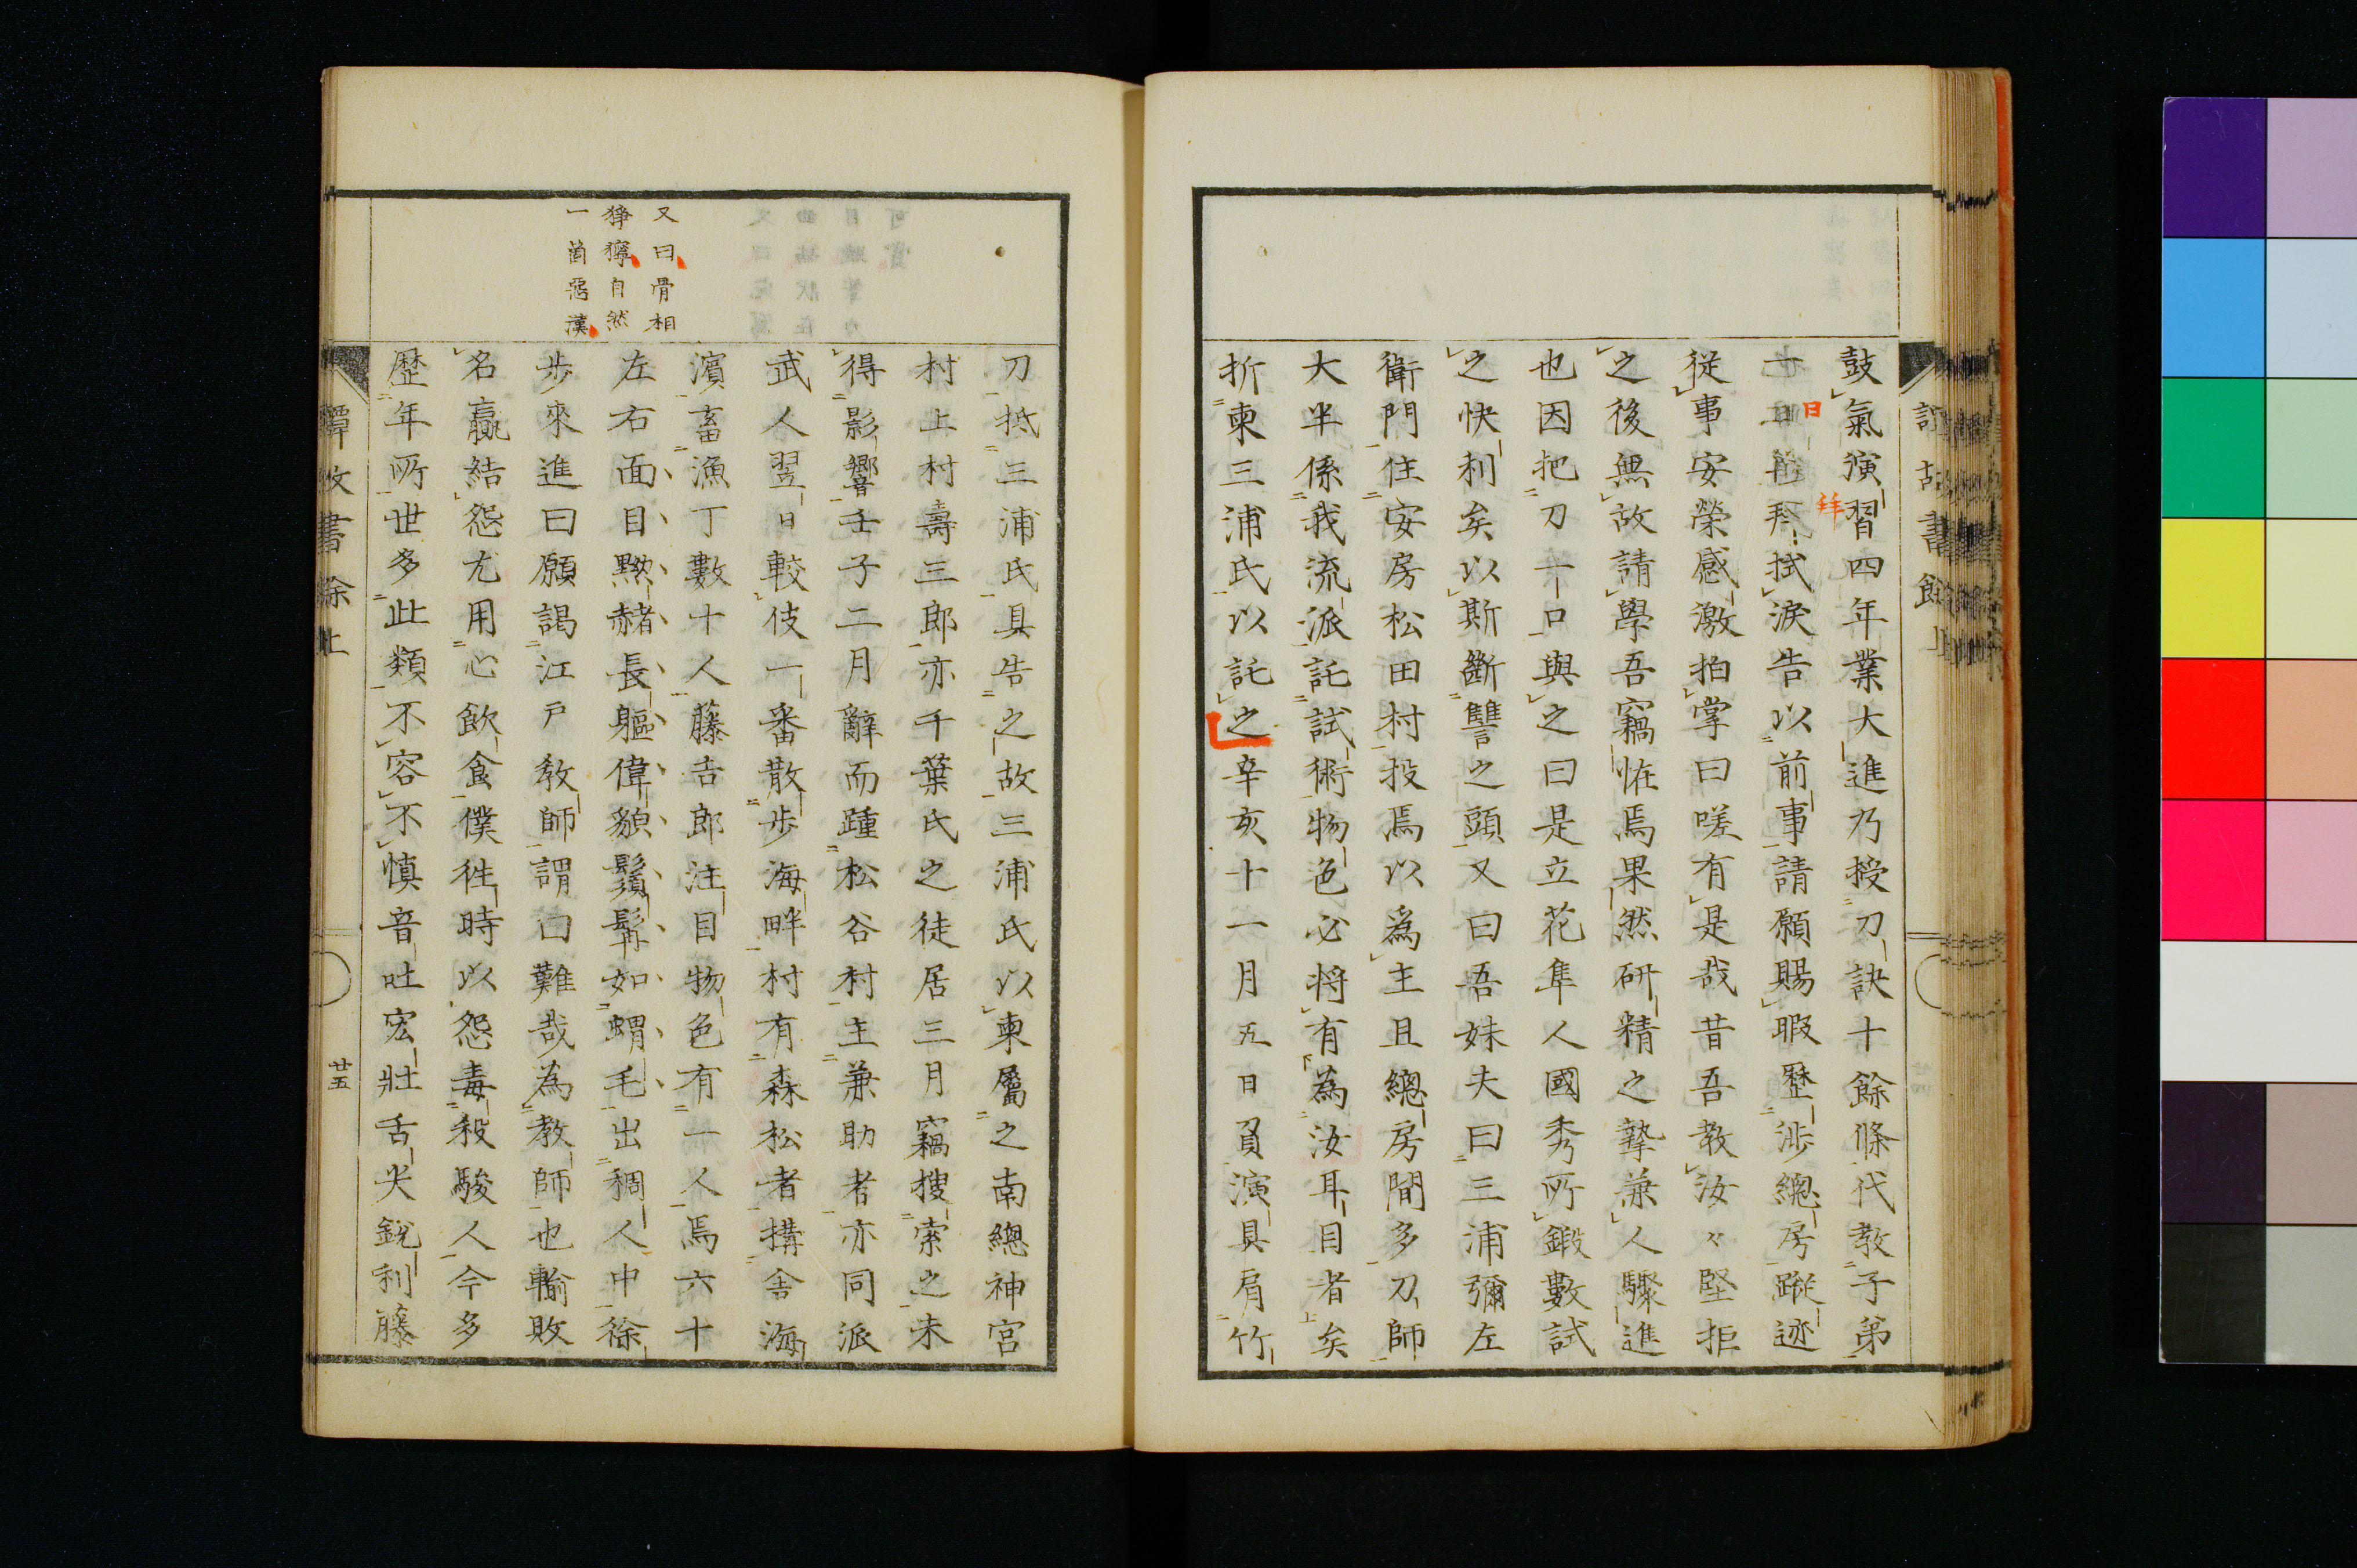 鼓氣演習四年業大進乃授刀訣十餘條代教子弟
一日再拜拭淚告以前事請願賜暇歷涉總房蹤迹
日
拜
從事安榮感激拍掌曰嗟有是哉昔吾教汝々堅拒
之後無故請學吾竊恠焉果然研精之摯兼人驟進
也因把刀一口與之曰是立花隼人國秀所鍛數試
之快利矣以斯斷讐之頭又曰吾妹夫曰三浦彌左
衛門住安房松田村投焉以爲主且總房間多刀師
大半係我流派託試術物色必將有為汝耳目者矣
折柬三浦氏以託之辛亥十一月五日負演具肩竹
刀抵三浦氏具告之故三浦氏以柬屬之南總神宮
村上村壽三郎亦千葉氏之徒居三月竊搜索之未
得影響壬子二月辭而踵松谷村主兼助者亦同派
武人翌日較伎一番散步海畔村有森松者搆舍海
濱畜漁丁數十人藤吉郎注目物色有一人焉六十
左右面目黲赭長軀偉貌鬚髯如蝟毛出稠人中徐
步來進曰願謁江戶教師謂曰難哉為教師也輸敗
名贏結怨尤用心飲食僕徃時以怨毒殺駿人今多
歷年所世多此類不容不慎音吐宏壯舌尖銳利藤
又曰骨相
猙獰自然
一箇惡漢
廿五